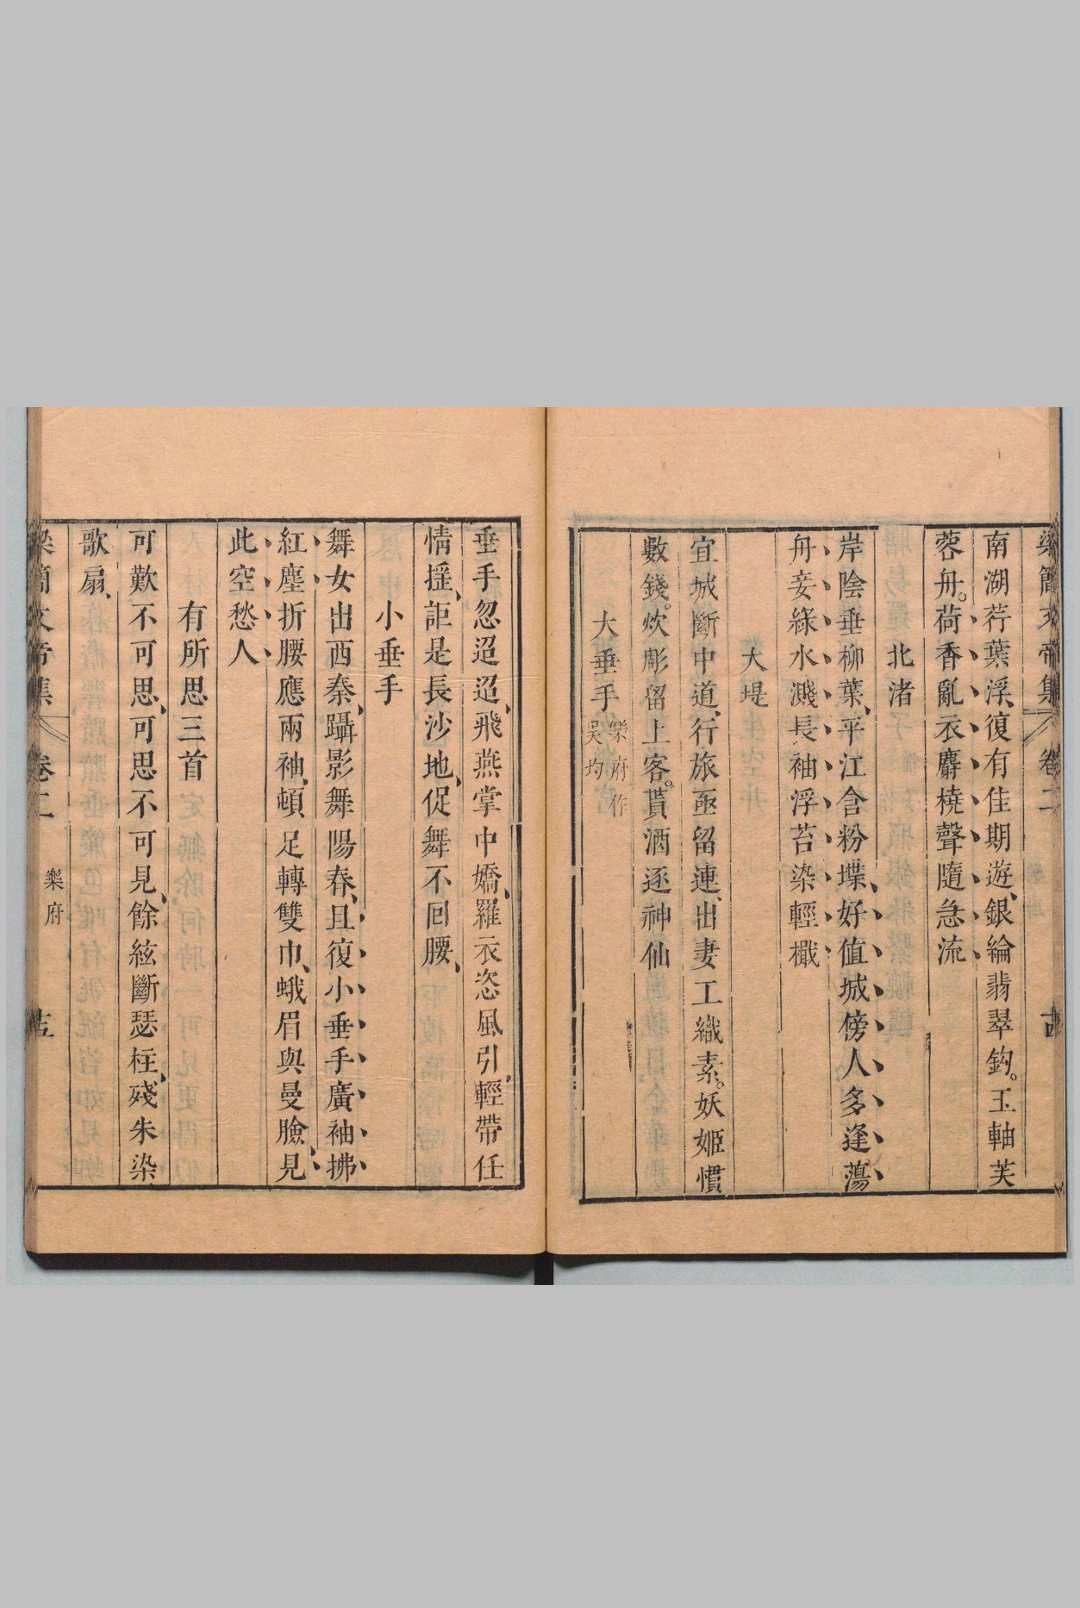 梁簡文帝集 卷二 十四
南湖荇葉浮、復有佳期遊、銀綸翡翠鉤。玉軸芙
蓉舟。荷香亂衣麝、橈聲隨急流
北渚
岸陰垂柳葉、平江含粉堞、好值城傍人、多逢蕩
舟妾、綠水濺長袖、浮苔染輕檝
大堤
宜城斷中道、行旅亟留連、出妻工織素。妖姬慣
數錢。炊彫留上客。貰酒逐神仙
大垂手 樂府作吳均
垂手忽迢迢、飛燕掌中嬌、羅衣恣風引、輕帶任
情搖、詎是長沙地、促舞不回腰、
小垂手
舞女出西秦、躡影舞陽春、且復小垂手、廣袖拂
紅塵、折腰應兩袖、頓足轉雙巾、蛾眉與曼臉、見
此空愁人
有所思三首
可歎不可思、可思不可見、餘絃斷瑟柱、殘朱染
歌扇、
梁簡文帝集 卷二 樂府 十五